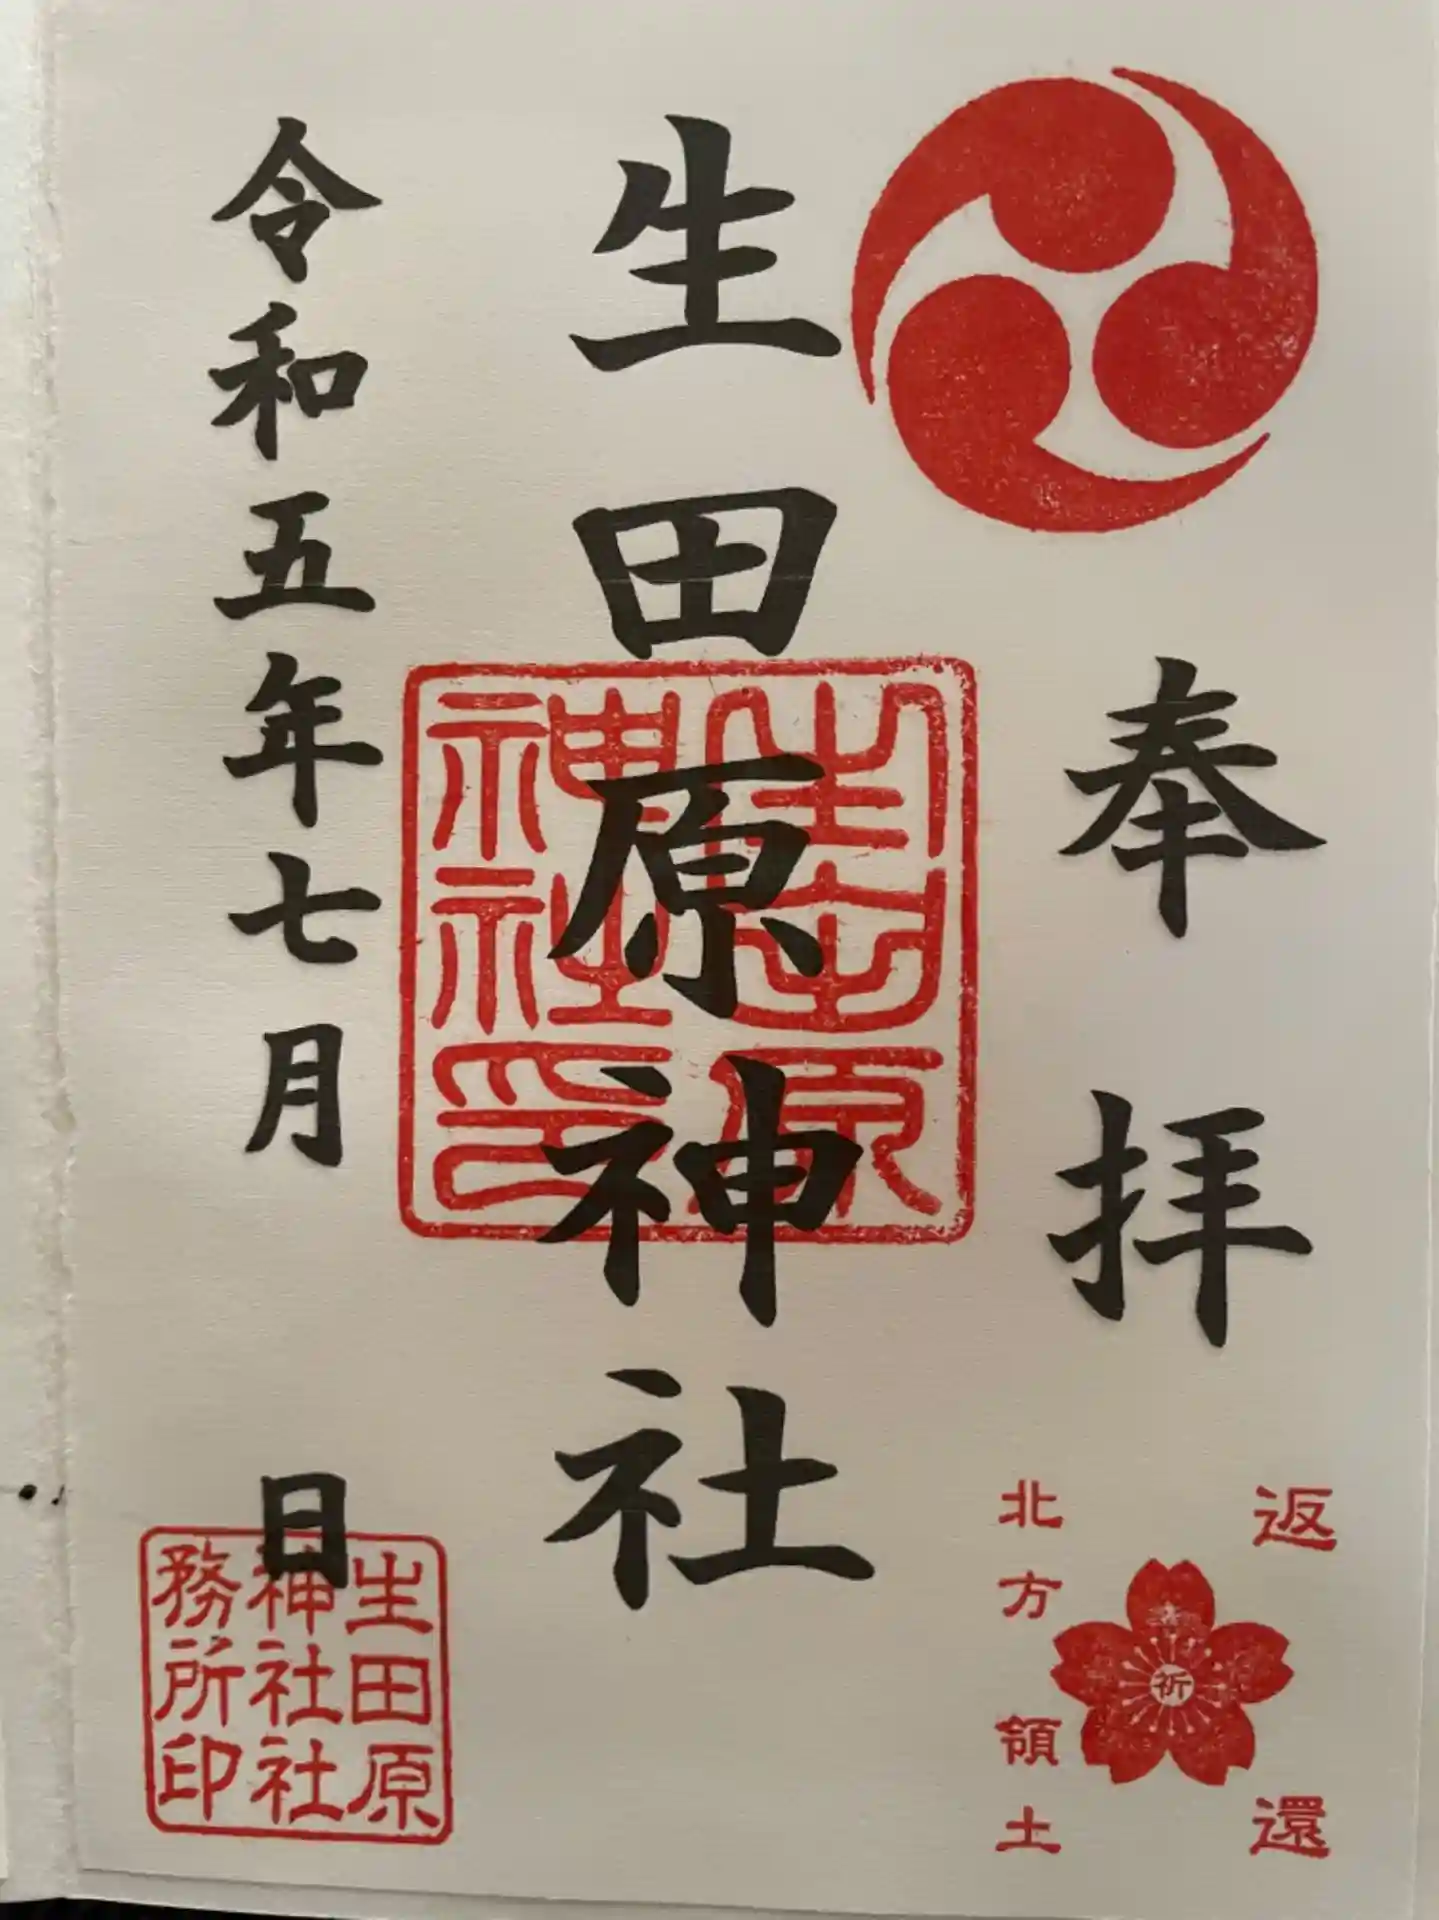 奉拝
生田原神社
令和五年七月 日
生田原
神社印
北方領土
祈
返還
生田原
神社社
務所印